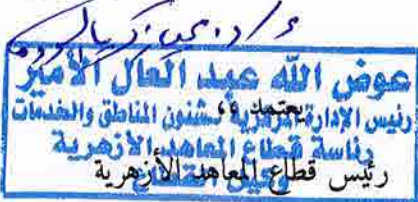 عوض الله عبد العال الأمير
يعتمد ،،
رئيس الإدارة المركزية لشئون المناطق والخدمات
رئاسة قطاع المعاهد الأزهرية
رئيس قطاع المعاهد الأزهرية